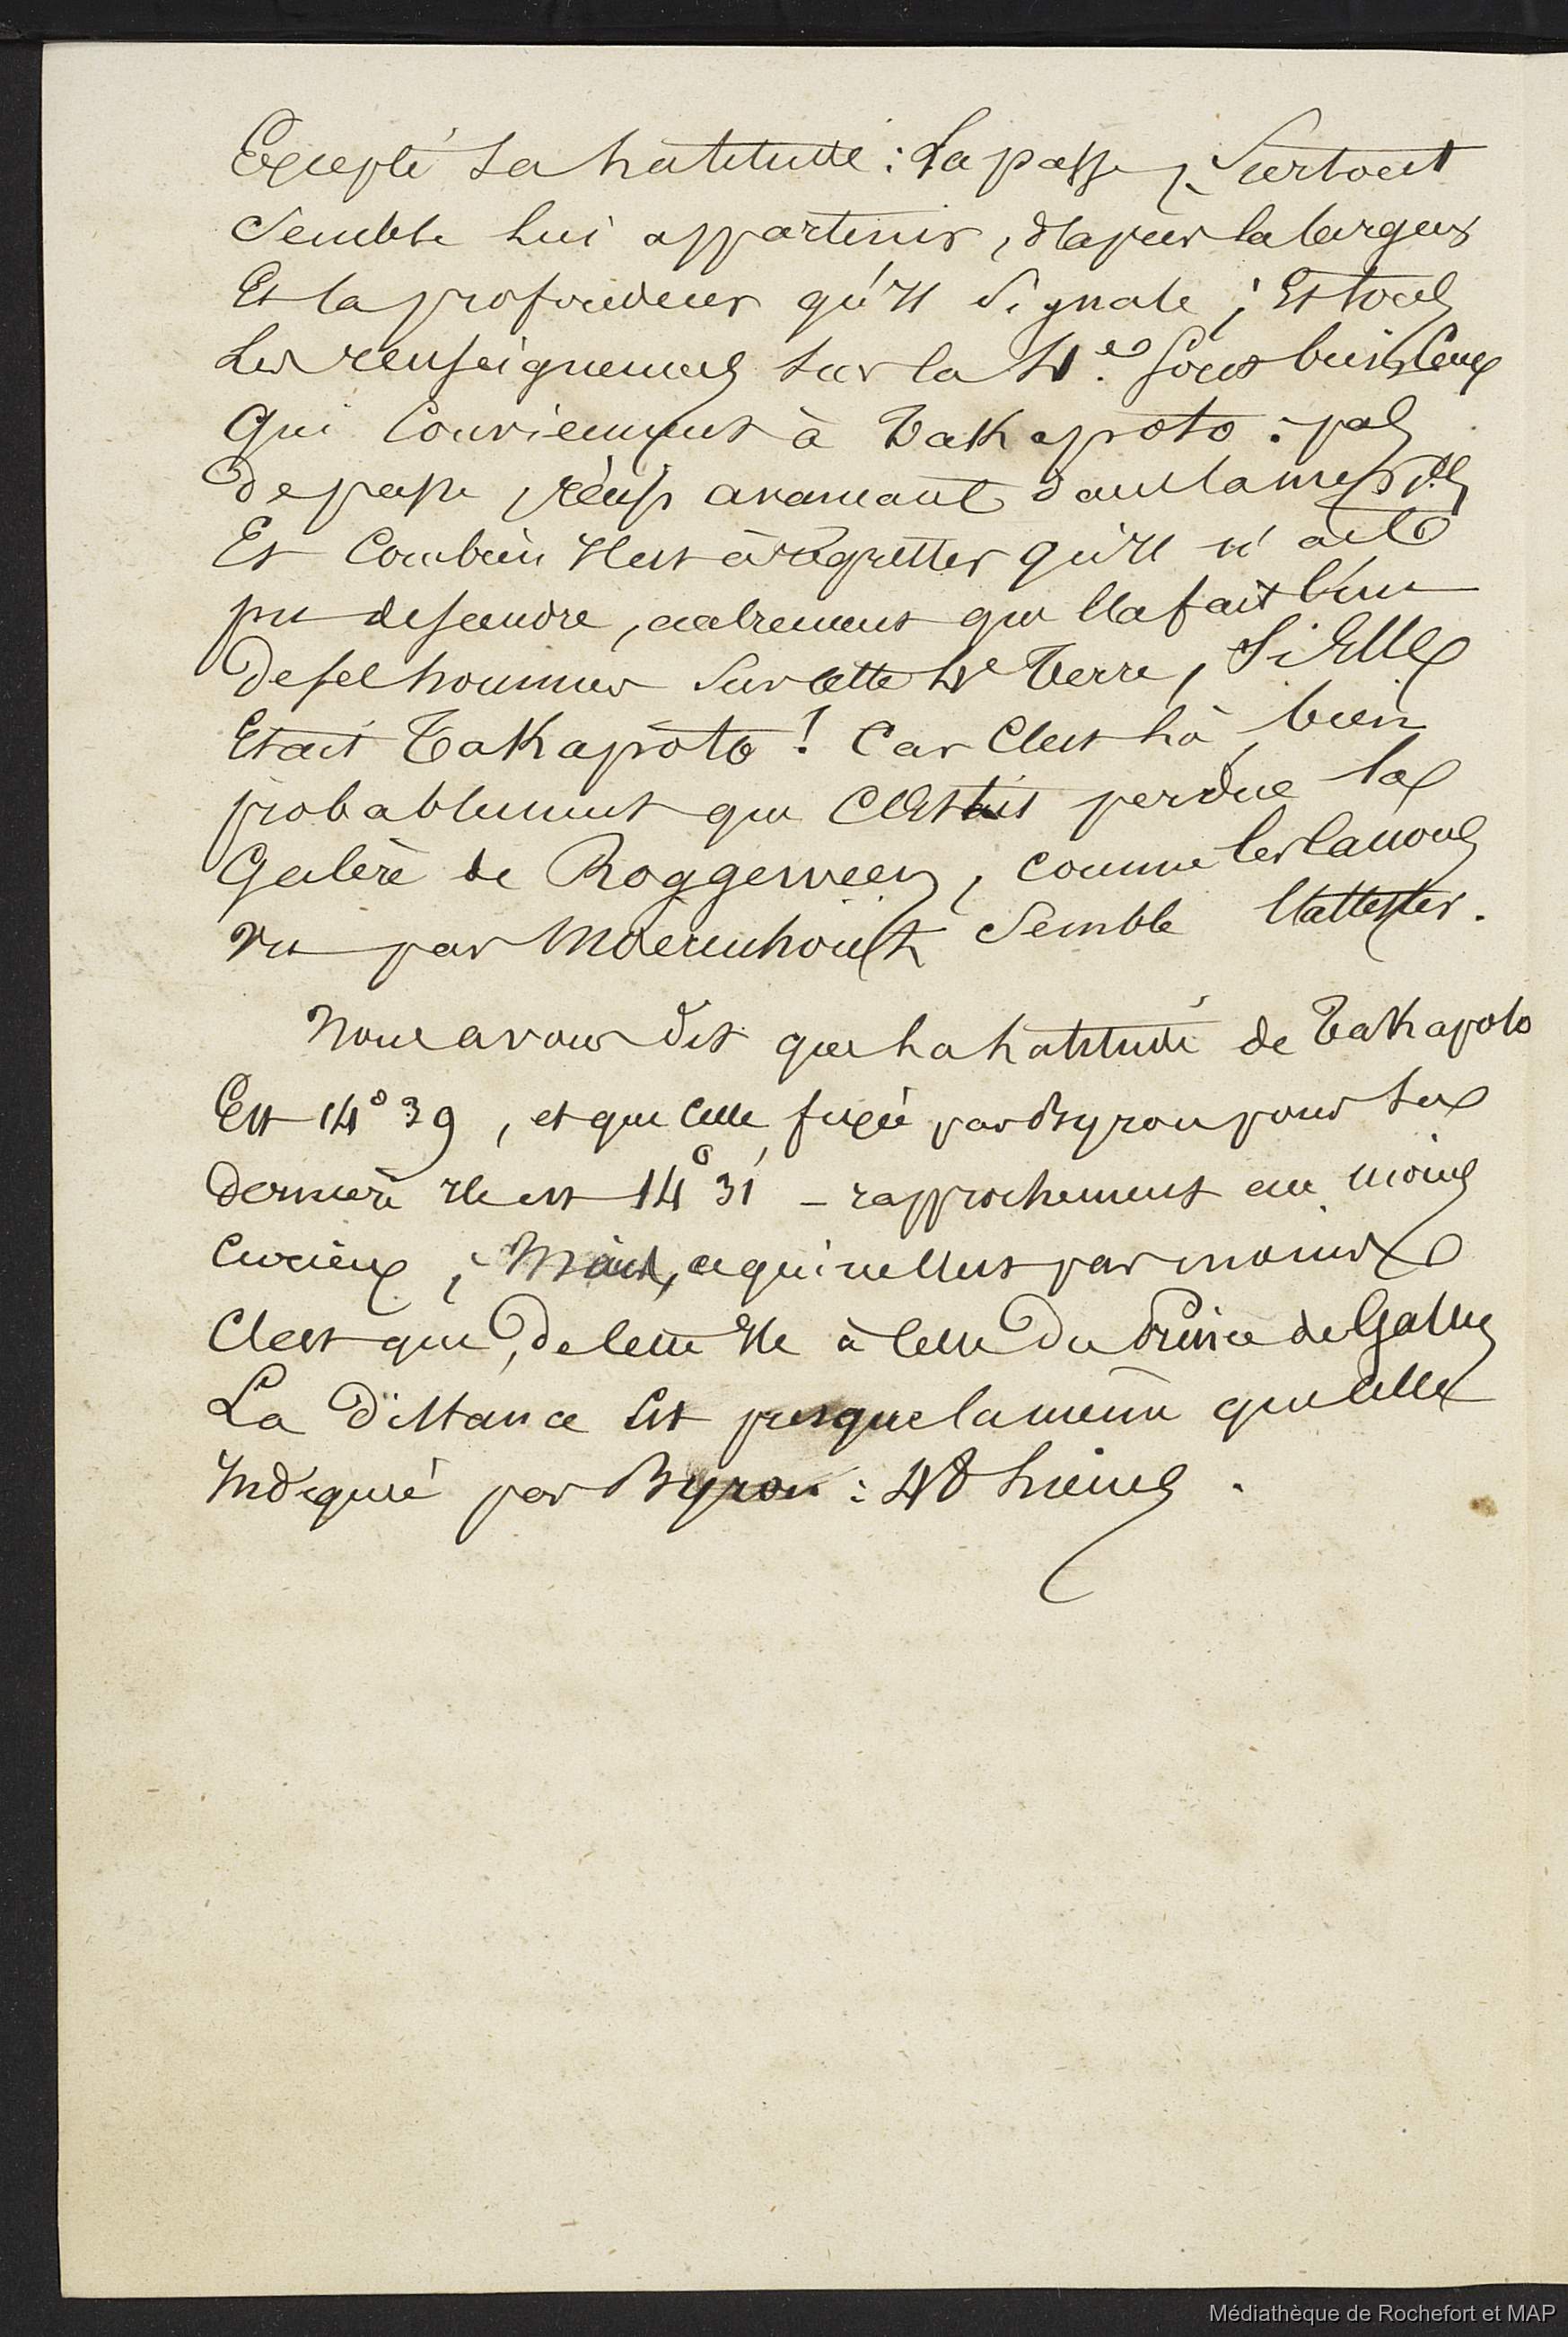 Excepté sa latitude : la passe, surtout
semble lui appartenir, d'après la largeur
et la profondeur qu'il signale ; et tous
les renseignements sur la 2e. sont bien ceux
qui conviennent à Takapoto : pas
de passe, récifs avançant dans la mer &a
Et combien il est à regretter qu'il n'ait
pu descendre, autrement que l'a fait l'un
de ses hommes sur cette 2e Terre, si Elle
était Takapoto ! Car c'est là, bien
probablement que s'est perdue la
Galère de Roggeween, comme les canons
vu par Moerenhout semble l'attester.
Nous avons dit que la latitude de Takapoto
Est 14° 39, et que celle fixée par Byron pour sa
dernière île est 14° 31' – rapprochement au moins
curieux ; Mais, ce qui ne l'est pas moins
c'est que, de cette île à celle du Prince de Galles
La distance est presque la même que celle
indiquée par Byron : 48 lieues.
Médiathèque de Rochefort et MAP